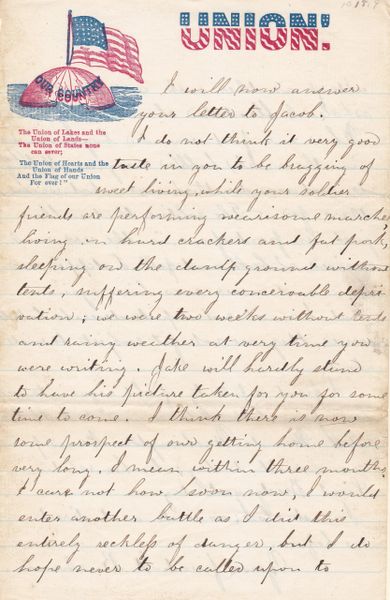 UNION!
OUR COUNTRY
The Union of Lakes and the
Union of Lands—
The Union of States none
can sever;
The Union of Hearts and the
Union of Hands
And the Flag of our Union
For ever!"
I will now answer
your letter to Jacob.
I do not think it very good
taste in you to be bragging of
sweet living, while your soldier
friends are performing wearisome marches,
living on hard crackers and fat pork,
sleeping on the damp ground without
tents, suffering every conceivable depri-
vation; we were two weeks without tents
and rainy weather at very time you
were writing. Jake will hardly stand
to have his picture taken for you for some
time to come. I think there is now
some prospect of our getting home before
very long, I mean within three months.
I care not how soon now, I would
enter another battle as I did this
entirely reckless of danger, but I do
hope never to be called upon to